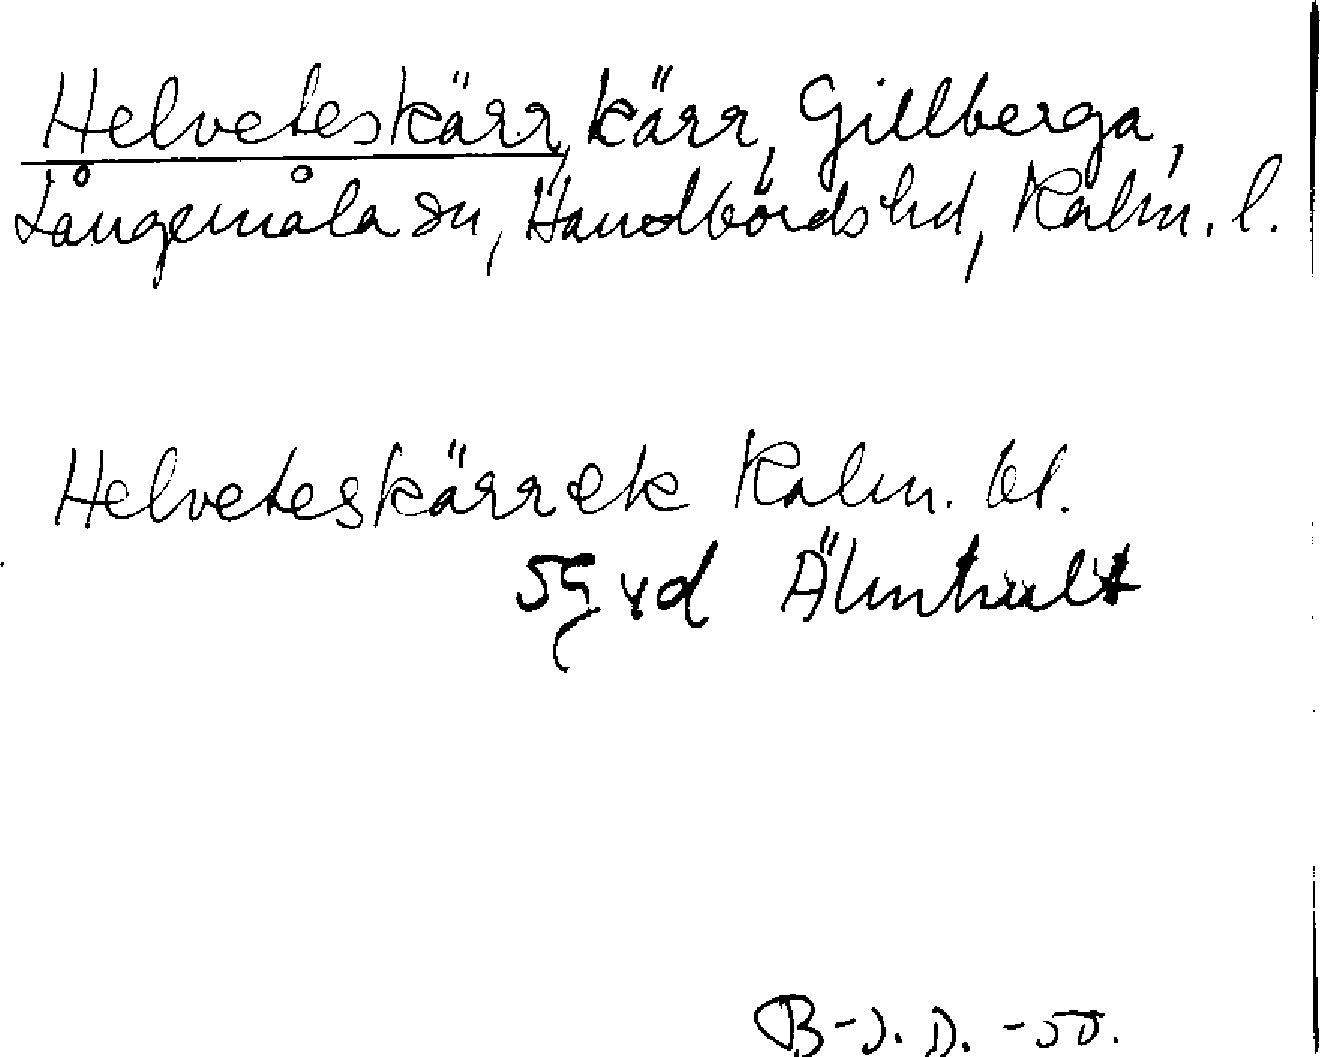 Helveteskärr, kärr, Gillberga,
Långemåla sn, Handbörds hd, Kalm. l.
Helveteskärr ek Kalm. bl.
5G vd Älmhult
B-J. D. -50.